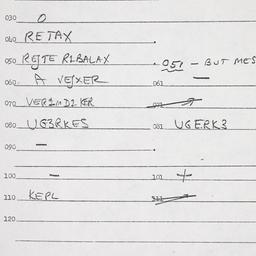 030 O
040 RETAX
050 REJTE R2BALAX . 051 - BUT MES
060 A VEJXER 061 —
070 071
080 UG3RKES 081 UGERK3
090 —
100 — 101 +
110 KEPL
120